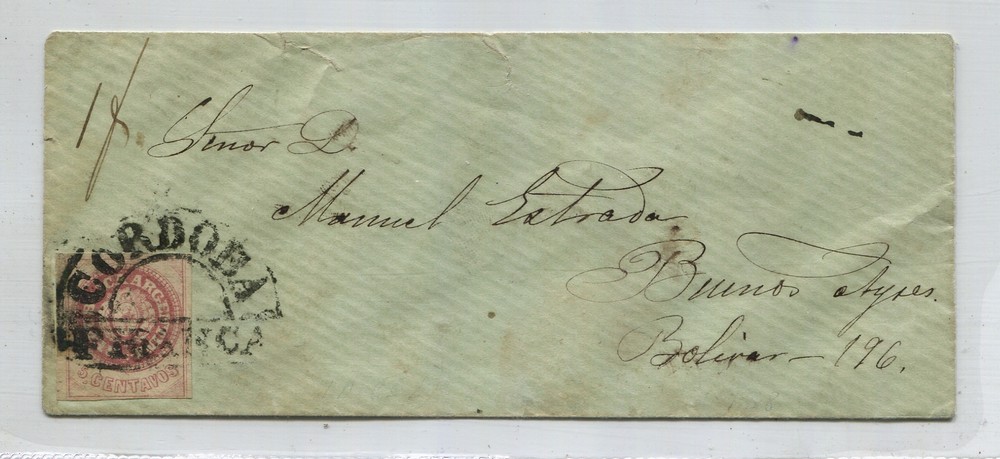 1/.
Señor D.
Manuel Estrada
Buenos Ayres.
Bolivar - 196.
CORDOBA
FRANCA
ARGEN
5 CENTAVOS